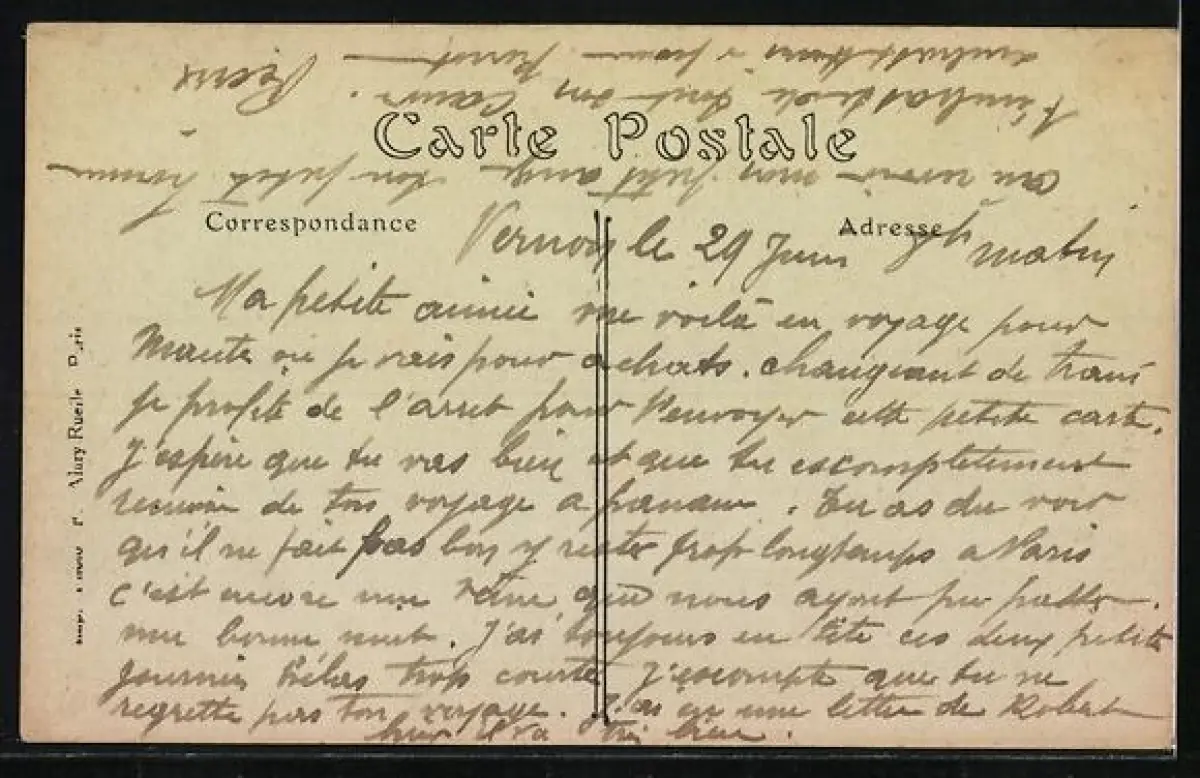 Carte Postale
Correspondance
Adresse
Vernon le 29 Juin 7h matin
Ma petite aimée me voilà en voyage pour
Mante ou je vais pour achats. changeant de train
je profite de l'arret pour t'envoyer cette petite carte.
J'espère que tu vas bien et que tu es complètement
remise de ton voyage a . Tu as du voir
qu'il ne fait pas bon y rester trop longtemps a Paris
c'est encore une veine que nous ayont pu passer
une bonne nuit. J'ai toujours en tête ces deux petite
journées hélas trop courte J'escompte que tu ne
regrette pas ton voyage. J'ai eu une lettre de Robert
hier il va très bien.
au revoir mon petit ange ton petit homme
t'embrasse de tout son Cœur.
Pierre
Alary Ruelle Paris